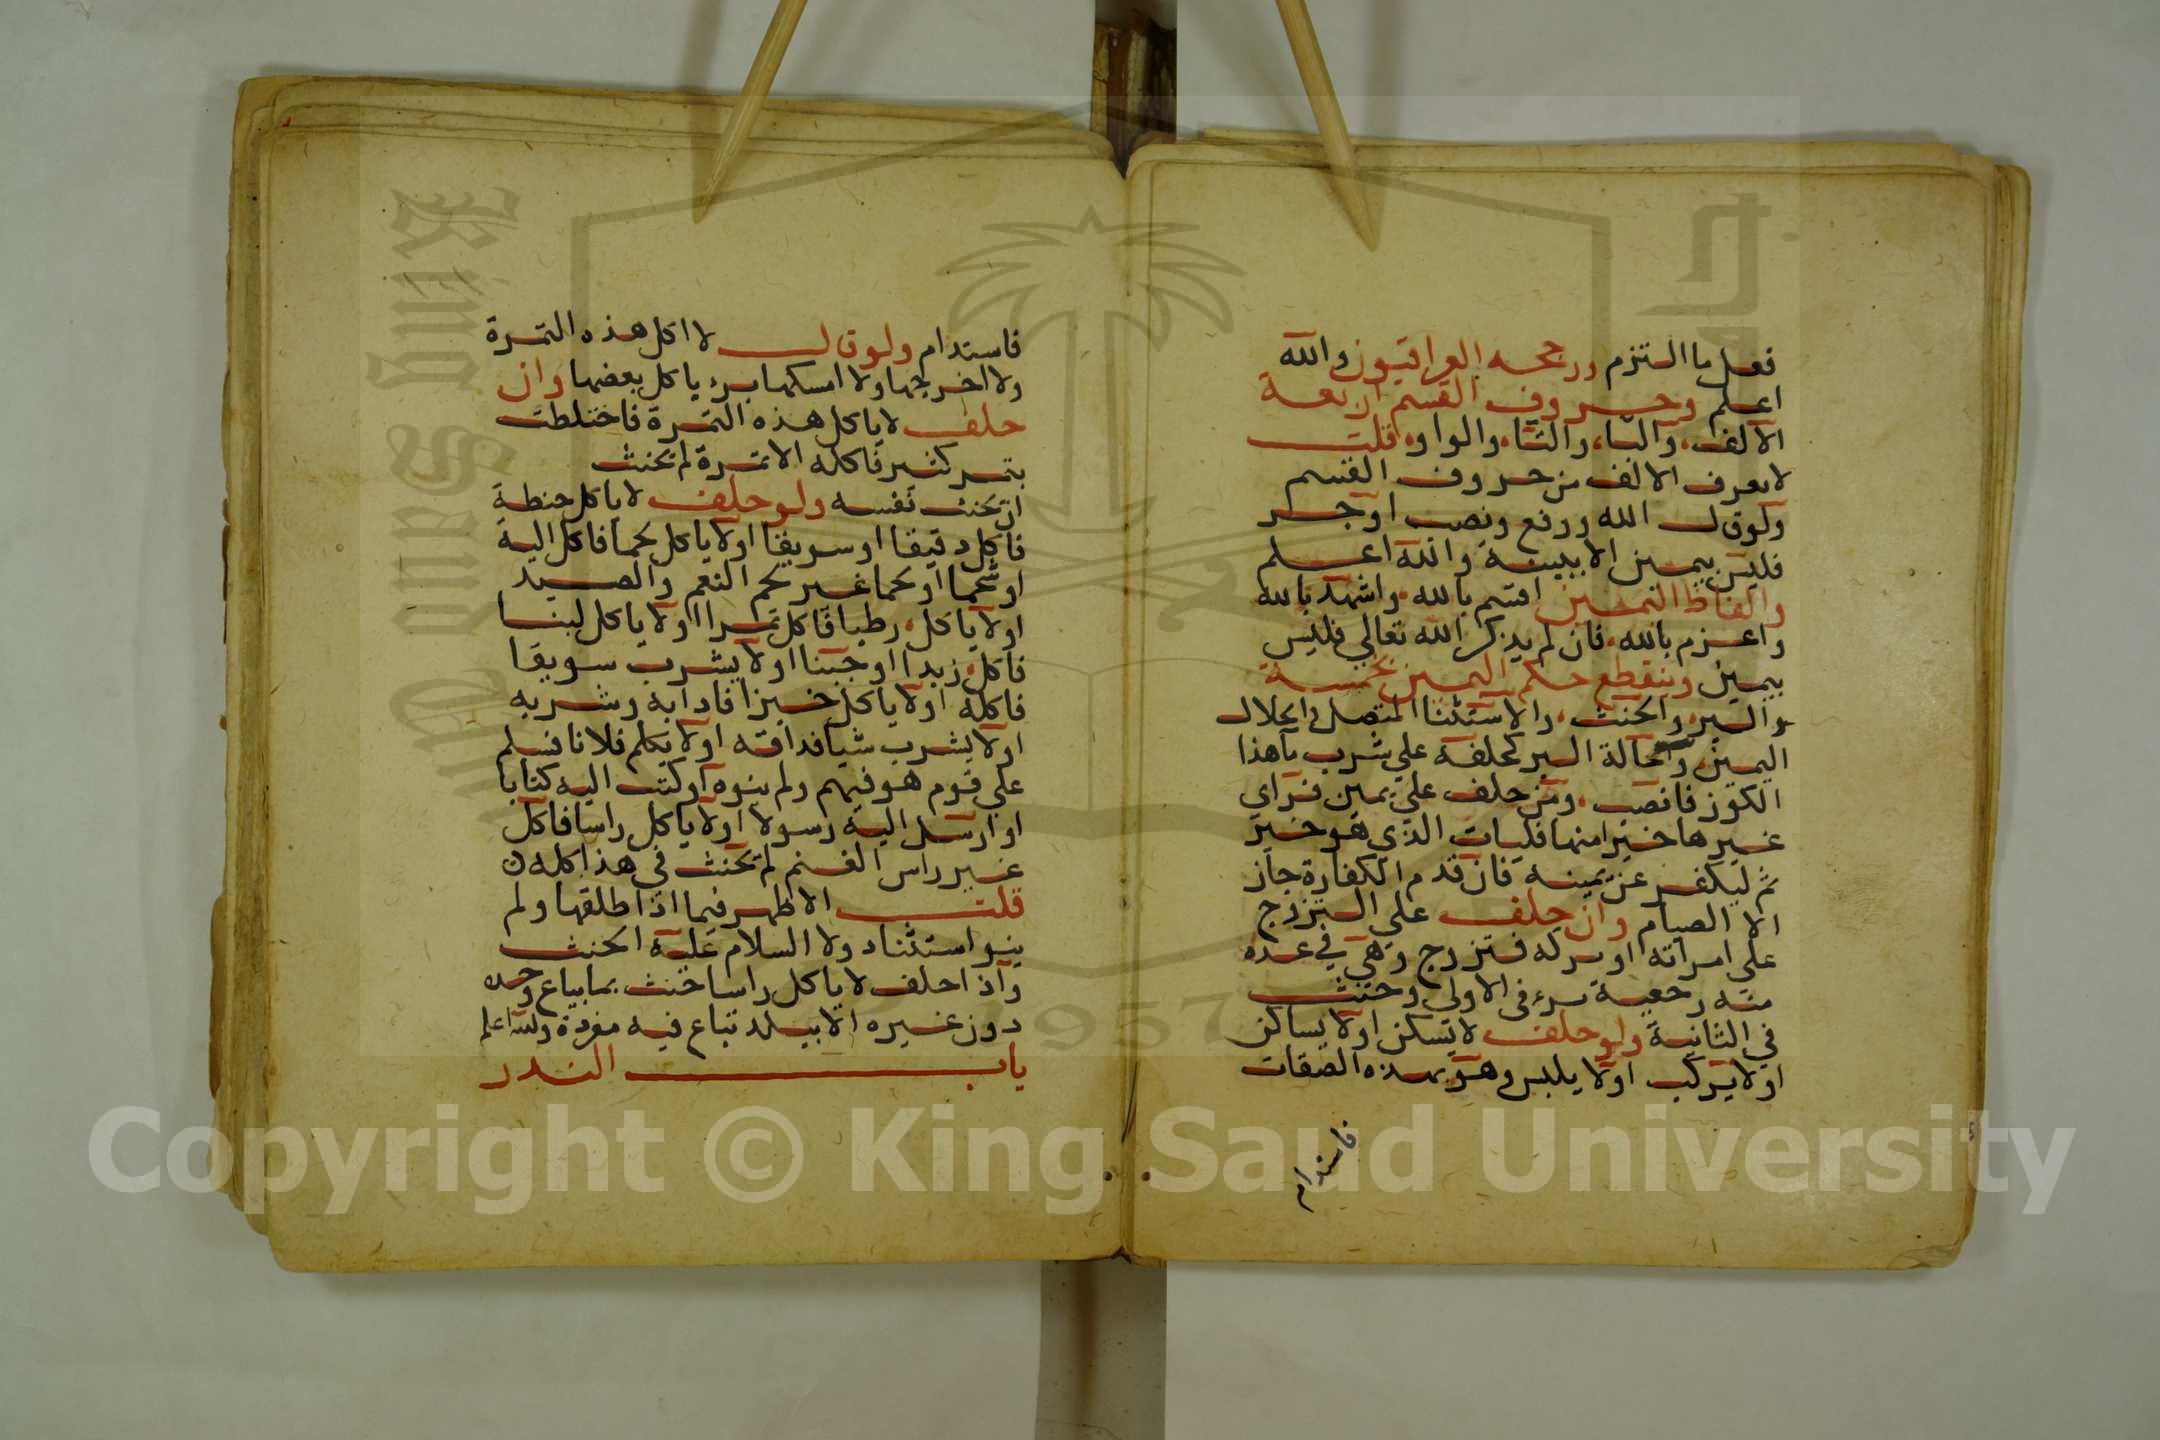 فعل ما التزم ورجحه العراقيون والله
اعلم وحروف القسم اربعة
الالف، والبا، والتا، والواو، قلت
لا يعرف الالف من حروف القسم
ولو قال الله ورفع ونصب او جر
فليس بيمين الا ببينة والله اعلم
والفاظ اليمين اقسم بالله، واشهد بالله
واعزم بالله، فان لم يذكر الله تعالي فليس
بيمين وينقطع حكم اليمين بخمسة
البر، والحنث، والاستثنا المتصل، وانحلال
اليمين، واستحالة البر كحلفه علي شرب ما هذا
الكوز فانصب، ومن حلف علي يمين فراي
غيرها خيرا منها فليات الذي هو خير
ثم ليكفر عن يمينه فان قدم الكفارة جاز
الا الصيام وان حلف علي التزوج
علي امراته او تركه فتزوج وهي في عدة
منه رجعية برء في الاولي وحنث
في الثانية ولو حلف لا يسكن اولا يساكن
اولا يركب اولا يلبس وهو بهذه الصفات
فاستدام
فاستدام ولو قال لا اكل هذه التمرة
ولا اخرجها ولا امسكها برء باكل بعضها وان
حلف لا ياكل هذه التمرة فاختلطت
بتمر كثير فاكله الا تمرة لم يحنث
ان يحنث نفسه ولو حلف لا ياكل حنطة
فاكل دقيقا او سويقا اولا ياكل لحما فاكل الية
او شحما او لحما غير لحم النعم والصيد
اولا ياكل، رطبا فاكل تمرا اولا ياكل لبنا
فاكل، زبدا او جبنا اولا يشرب سويقا
فاكله اولا ياكل خبزا فادابه وشربه
اولا يشرب شيا فداقه اولا يكلم فلانا فسلم
علي قوم هو فيهم ولم ينوه او كتب اليه كتابا
او ارسل اليه رسولا اولا ياكل راسا فاكل
غير راس الغنم لم يحنث في هذا كله
قلت الاظهر فيما اذا طلقها ولم
ينو استثناه ولا السلام عليه الحنث
واذا حلف لا ياكل راسا حنث بما يباع وحده
دون غيره الا ببلد تباع فيه مفردة والله اعلم
باب النذر
Copyright © King Saud University
King Saud University
1957